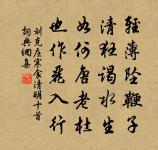 輕薄墜鞭子
清狂謁水生
如何唐老杜
也作麗人行
劉克莊寒食清明十首
詞典網